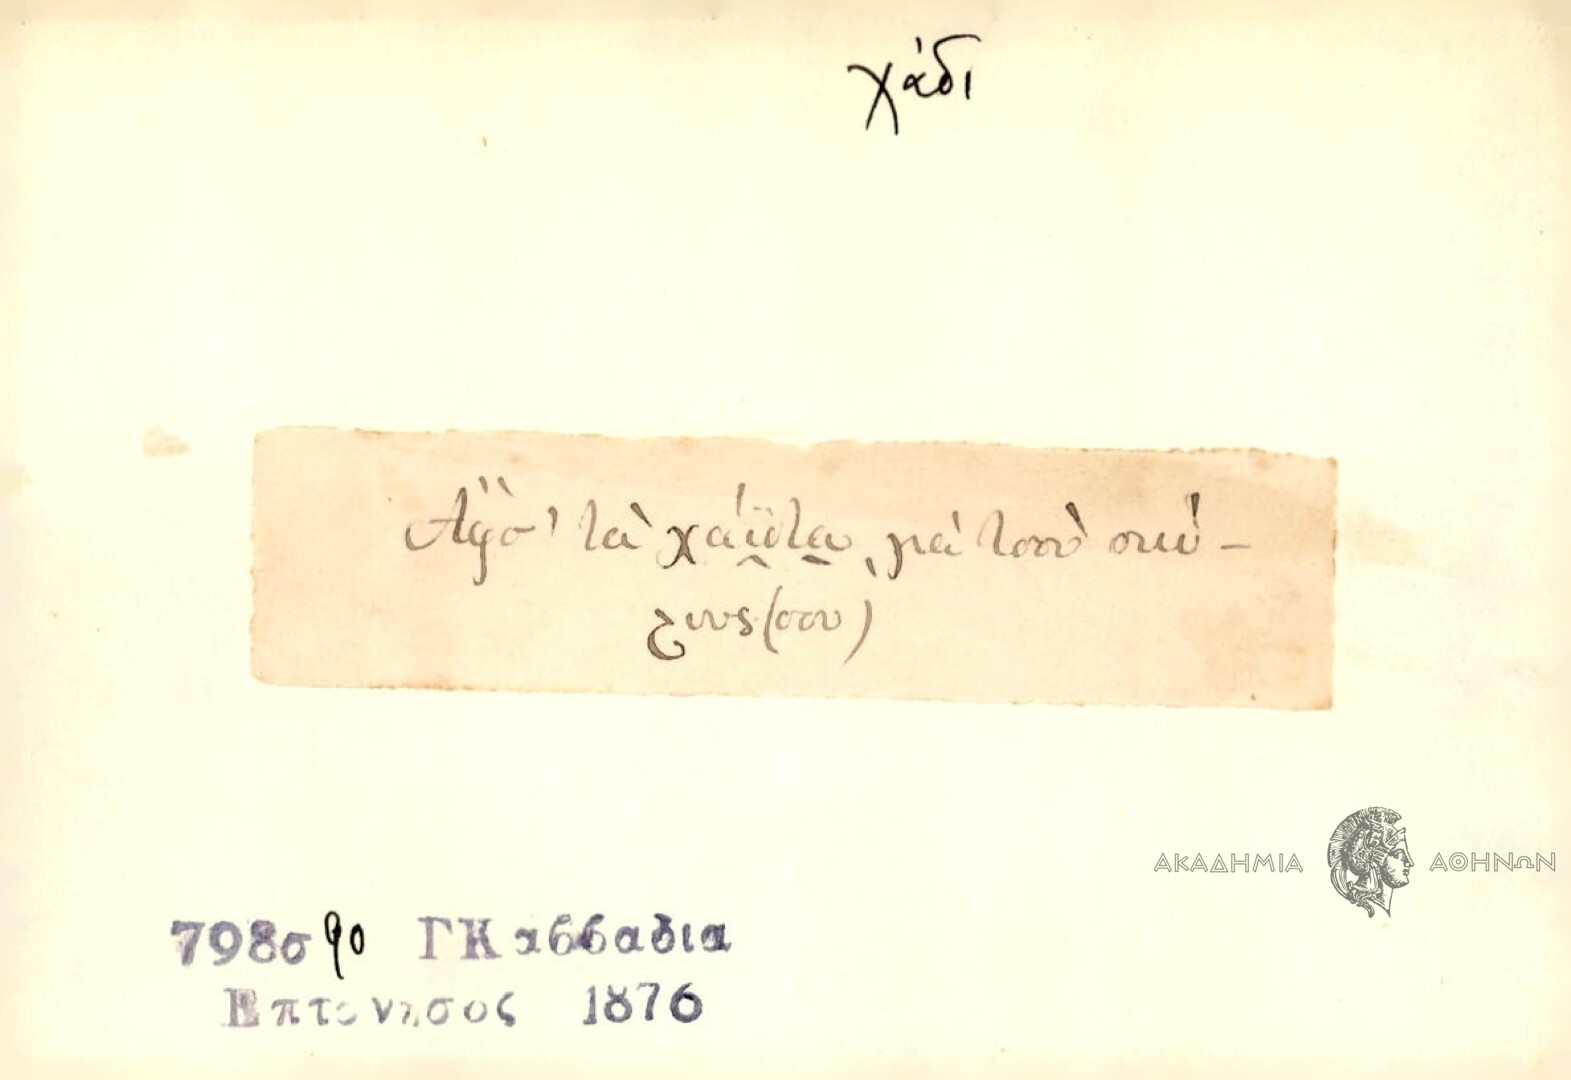 χάδι
Ἄφσ' τὰ χάϊδια μὲ τσοὺ σκύ-
λους (σου)
ΑΚΑΔΗΜΙΑ ΑΘΗΝΩΝ
798σ 90 ΓΚαββαδια
Επτανησος 1876